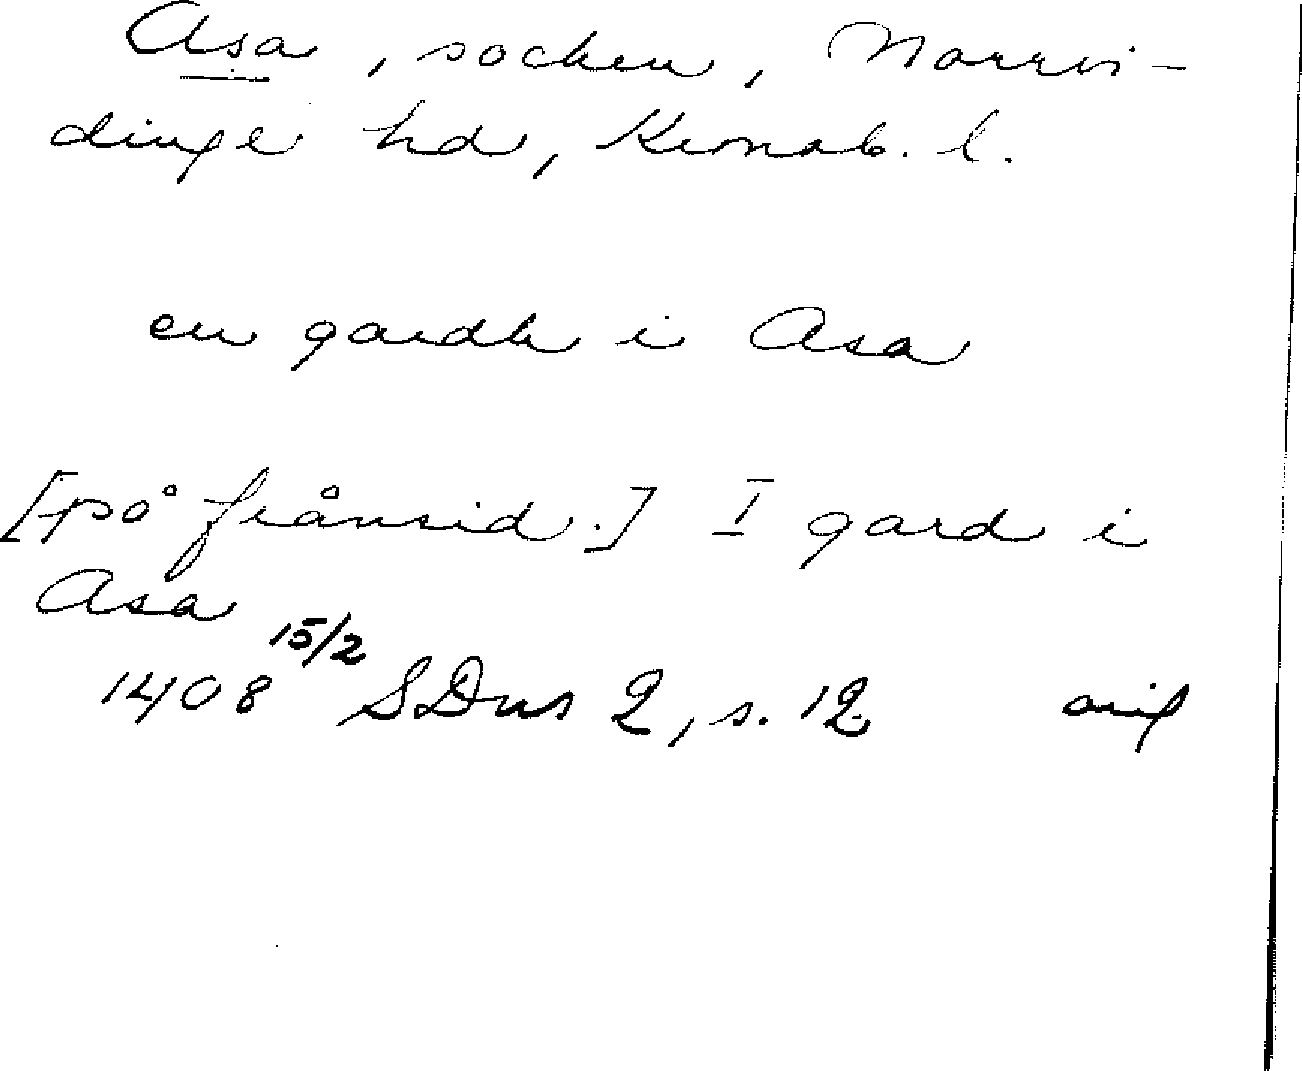 Asa, socken, Norrvi-
dinge hd, Kronob. l.
en gardh i Asa
[på frånsid.] I gard i
Asa
1408 15/2 SDns 2, s. 12 orig